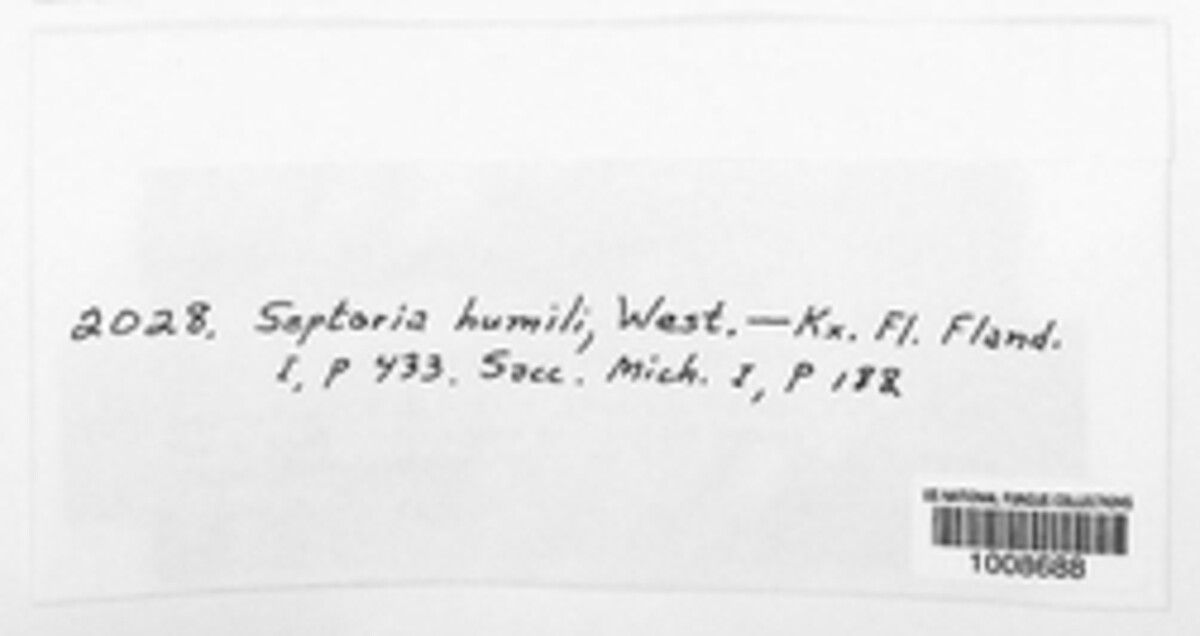 2028. Septoria humili, West. — Kx. Fl. Fland.
I, p 433. Sacc. Mich. I, p 188
US NATIONAL FUNGUS COLLECTIONS
1008688